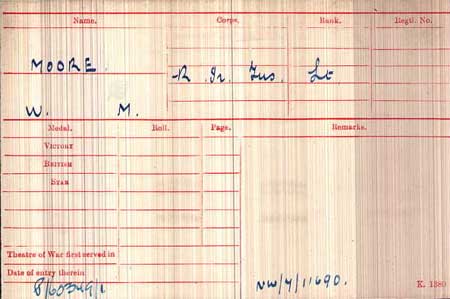 Name. Corps. Rank. Regtl. No.
MOORE. R. Ir. Fus. Lt.
W. M.
Medal. Roll. Page. Remarks.
VICTORY
BRITISH
STAR
Theatre of War first served in
Date of entry therein
K. 1380
NW/7/11690.